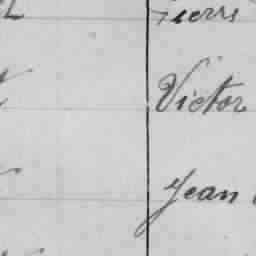 Pierre
Victor
Jean